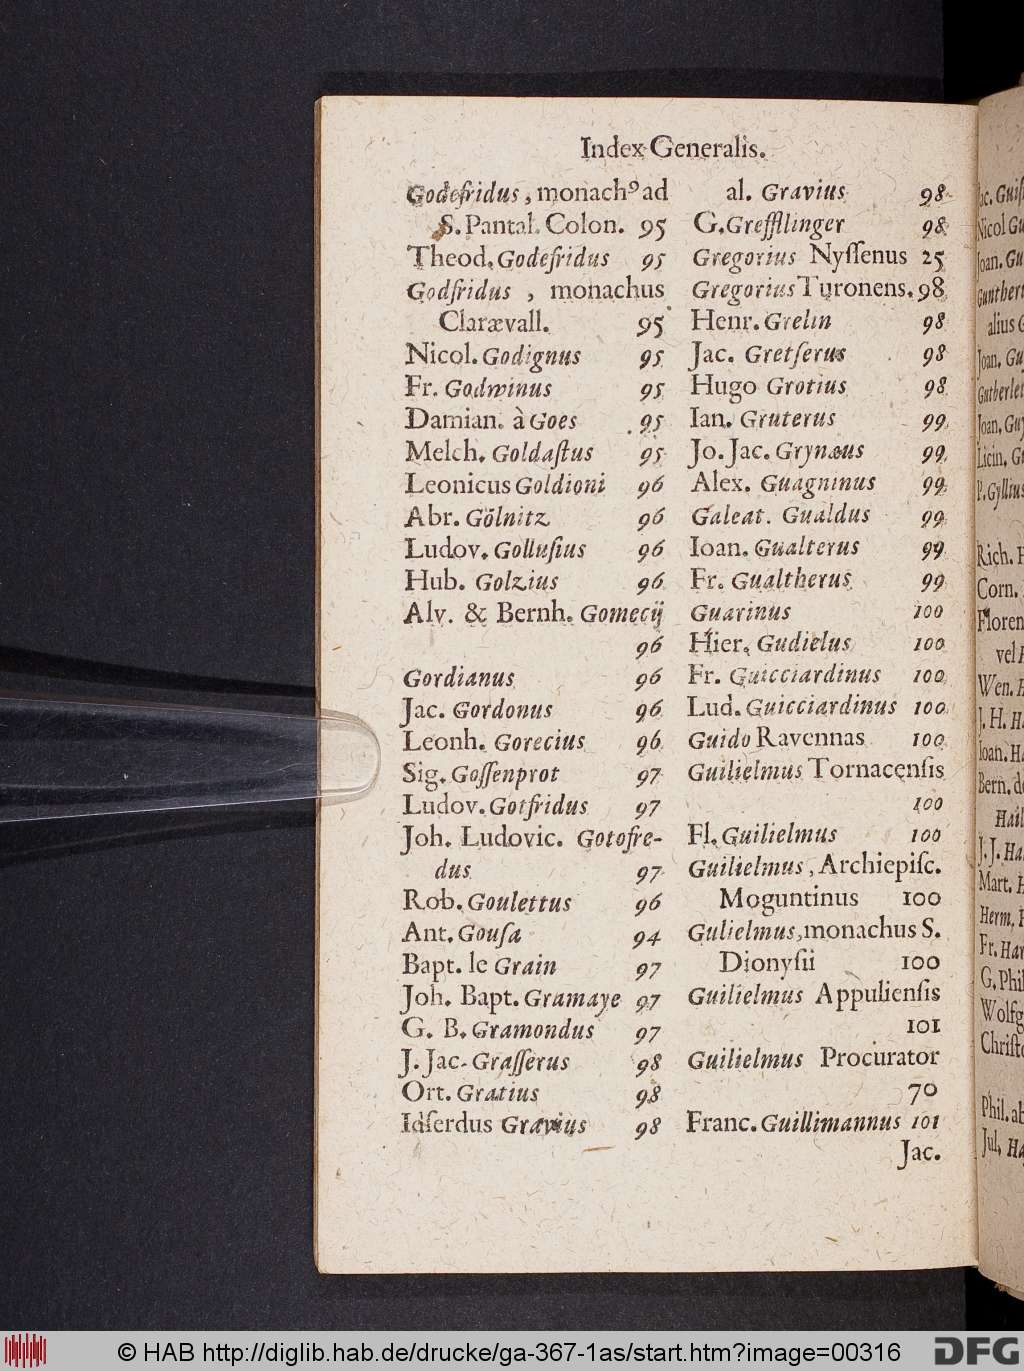 Index Generalis.
Godefridus, monachꝰ ad
S. Pantal. Colon. 95
Theod. Godefridus 95
Godfridus, monachus
Clarævall. 95
Nicol. Godignus 95
Fr. Godwinus 95
Damian. à Goes 95
Melch. Goldaſtus 95
Leonicus Goldioni 96
Abr. Gölnitz 96
Ludov. Golluſius 96
Hub. Golzius 96
Alv. & Bernh. Gomecij
96
Gordianus 96
Jac. Gordonus 96
Leonh. Gorecius 96
Sig. Goſſenprot 97
Ludov. Gotfridus 97
Joh. Ludovic. Gotofre-
dus 97
Rob. Goulettus 96
Ant. Gouſa 94
Bapt. le Grain 97
Joh. Bapt. Gramaye 97
G. B. Gramondus 97
J. Jac. Graſſerus 98
Ort. Gratius 98
Idſerdus Gravius 98
al. Gravius 98
G. Grefflinger 98
Gregorius Nyſſenus 25
Gregorius Turonens. 98
Henr. Grelin 98
Jac. Gretſerus 98
Hugo Grotius 98
Ian. Gruterus 99
Jo. Jac. Grynæus 99
Alex. Guagninus 99
Galeat. Gualdus 99
Ioan. Gualterus 99
Fr. Gualtherus 99
Guarinus 100
Hier. Gudielus 100
Fr. Guicciardinus 100
Lud. Guicciardinus 100
Guido Ravennas 100
Guilielmus Tornacenſis
100
Fl. Guilielmus 100
Guilielmus, Archiepiſc.
Moguntinus 100
Gulielmus, monachus S.
Dionyſii 100
Guilielmus Appulienſis
101
Guilielmus Procurator
70
Franc. Guillimannus 101
Jac.
Nicol
Joan.
alius
Joan.
Joan.
Licin.
P. Gyllius
Rich.
Corn.
Floren
vel
Wen.
J. H.
Ioan.
Bern. de
Hail
J. J. Ha
Mart.
Herm.
Fr. Har
G. Phil
Wolfg
Chriſto
Phil. ab
Jul. Ha
© HAB http://diglib.hab.de/drucke/ga-367-1as/start.htm?image=00316
DFG